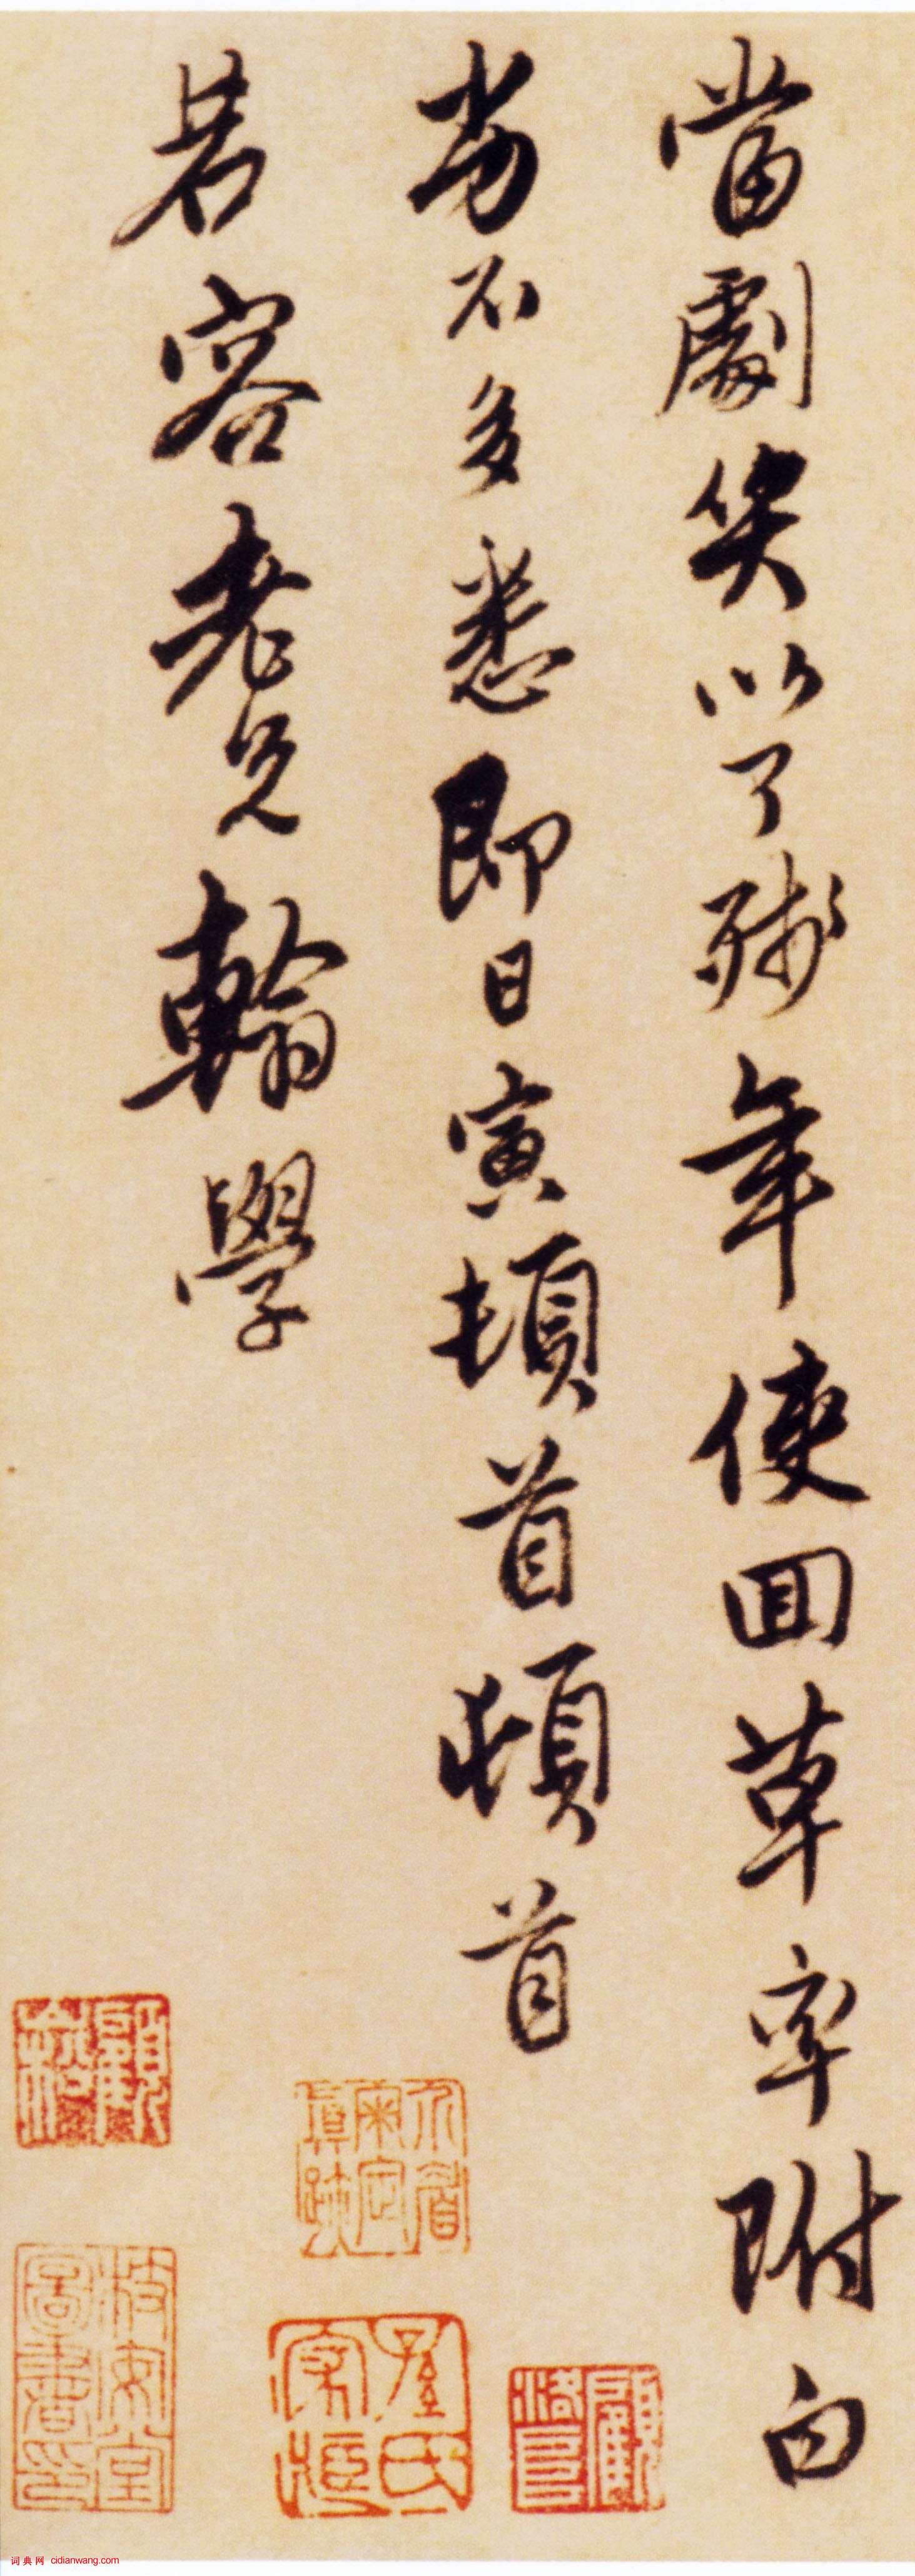 當劇笑以了殘年使回草率附白
不多悉即日寅頓首頓首
若容老兄翰學
词典网 cidianwang.com